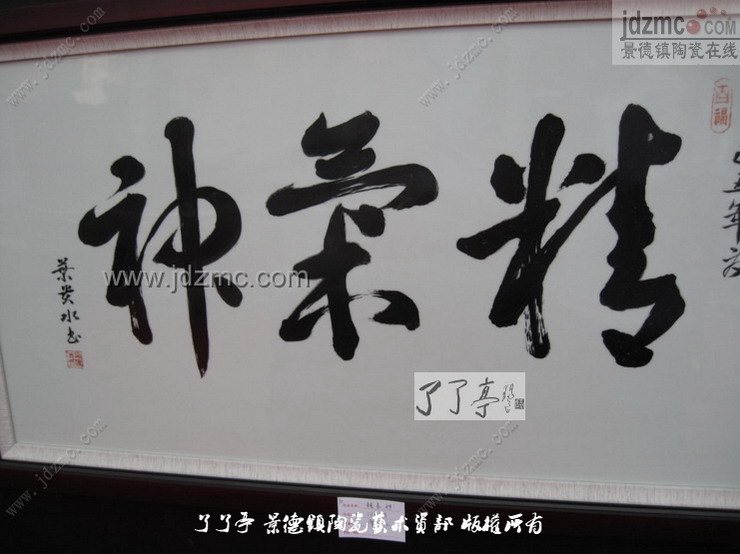 精氣神
葉贵水书
百福
了了亭
jdzmc.COM
景德镇陶瓷在线
www.jdzmc.com
了了亭 景德镇陶瓷艺术资部 版权所有